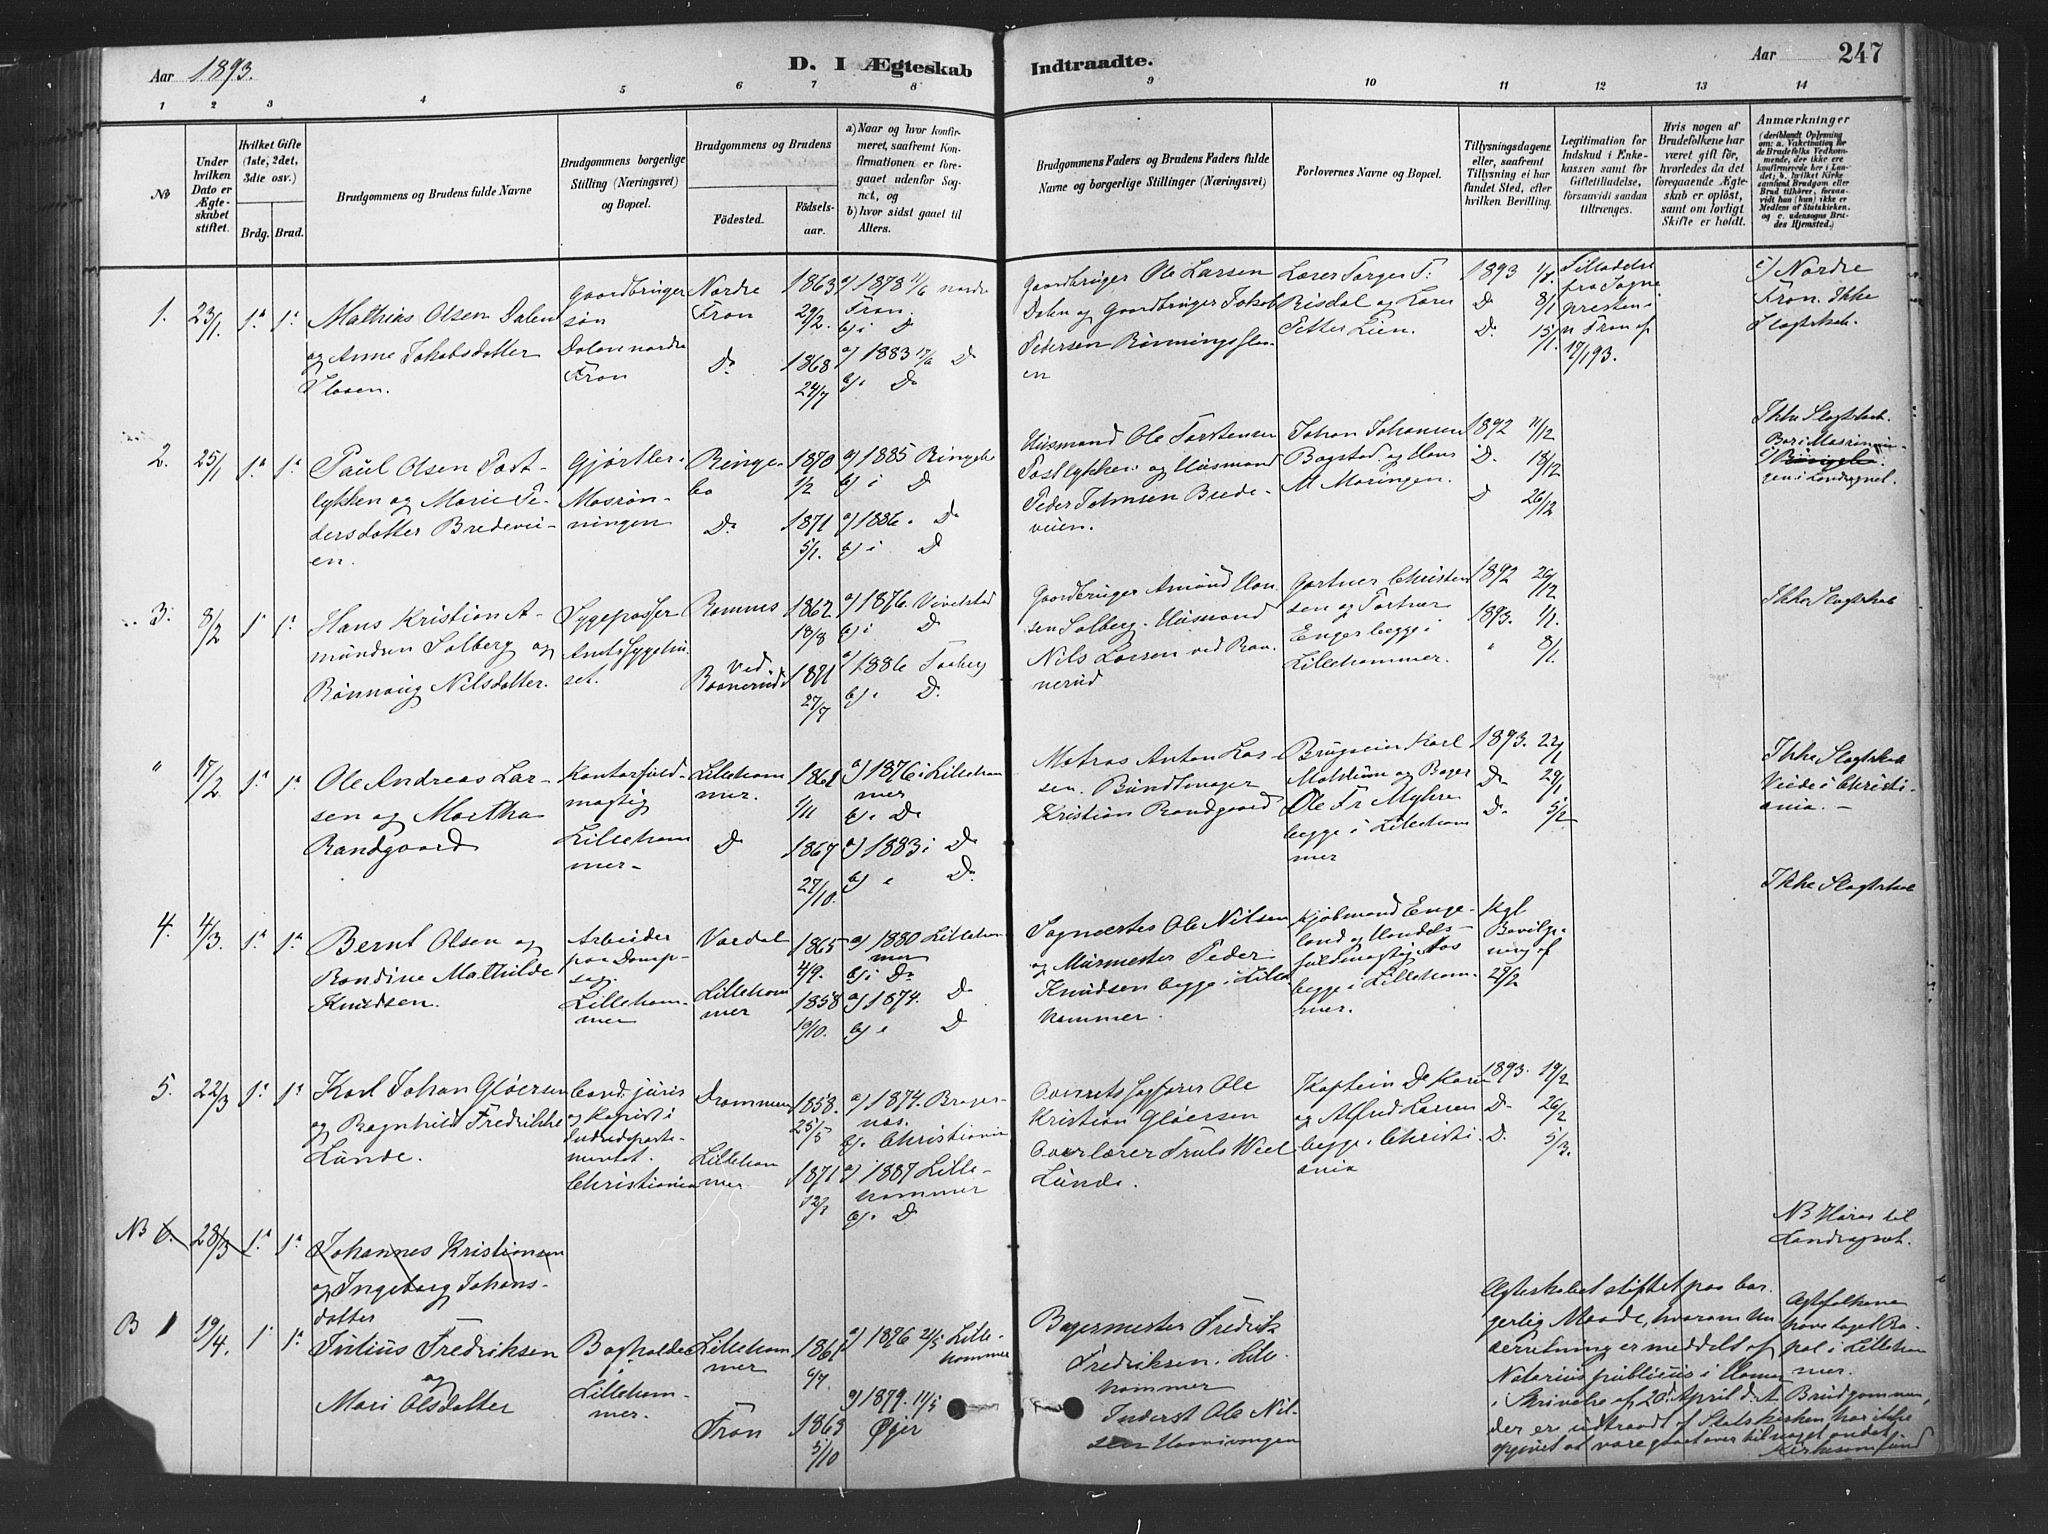 Aar 1893.
D. I Ægteskab Indtraadte.
Aar 247
1 2 3 4 5 6 7 8 9 10 11 12 13 14
№
Under hvilken Dato er Ægteskabet stiftet.
Hvilket Gifte (1ste, 2det, 3die osv.)
Brdg. Brud.
Brudgommens og Brudens fulde Navne
Brudgommens borgerlige Stilling (Næringsvei) og Bopæl.
Brudgommens og Brudens
Fødested.
Fødselsaar.
a) Naar og hvor konfirmeret, saafremt Konfirmationen er foregaaet udenfor Sognet, og
b) hvor sidst gaaet til Alters.
Brudgommens Faders og Brudens Faders fulde Navne og borgerlige Stillinger (Næringsvei)
Forlovernes Navne og Bopæl.
Tillysningsdagene eller, saafremt Tillysning ei har fundet Sted, efter hvilken Bevilling.
Legitimation for Indskud i Enkekassen samt for Giftetilladelse, forsaavidt saadan tiltrænges.
Hvis nogen af Brudefolkene har været gift før, hvorledes da det foregaaende Ægteskab er opløst, samt om lovligt Skifte er holdt.
Anmærkninger
(deriblandt Oplysning om: a. Vakcination for de Brudefolks Vedkommende, der ikke ere konfirmerede her i Landet; b. hvilket Kirkesamfund Brudgom eller Brud tilhører, forsaavidt han (hun) ikke er Medlem af Statskirken. og c. udensogns Brudes Hjemsted.)
1. 23/1 1ª 1ª
Mathias Olsen Dalen
og Anne Jakobsdatter
Floen.
Gaardbruger
søn
Dalen nordre
Fron
Nordre
Fron
Dº
1863
29/2.
1868
24/7
a) 1878 11/6 nordre
Fron.
b) i D
a) 1883 17/6 D
b) i Dº
Gaardbruger Ole Larsen
Dalen og Gaardbruger Jakob
Pedersen Rønningsfloen
Lærer Torger T:
Risdal og Lærer
Petter Lien.
1893 1/1.
D. 8/1
D. 15/1.
Tilladelse
fra Sogne
presten i
n Fron af
17/1 93.
c) Nordre
Fron. Ikke
Slægtskab.
2. 25/1 1ª 1ª
Paul Olsen Post-
lykken og Marie Pe-
dersdatter Bredevei-
en.
Gjørtler.
Mosrøn-
ningen
Ringe-
bo
Dº
1870
1/2
1871
5/1.
a) 1885 Ringebo
b) i D
a) 1886. Dº
b) i D
Husmand Ole Torstensen
Postlykken og Husmand
Peder Johnsen Brede-
veien.
Johan Johansen
Bagstad og Hans
M Moringen.
1892 11/12
D. 18/12
D 26/12
Ikke Slægtskab.
3. 8/2 1ª 1ª
Hans Kristian A-
mundsen Solberg og
Rønnaug Nilsdatter.
Sygepasser
Amtssygehu-
set.
Romnes
Ved
Roverud
1862
18/8
1871
27/7
a) 1876.
b) i D
a) 1886 Faaberg
b) " D.
Gaardbruger Amund Han-
sen Solberg. Husmand
Nils Larsen ved Ro-
verud
Gartner Christen-
sen og Partner
Enger begge i
Lillehammer.
1892 26/12
1893. 1/1.
" 8/1.
Ikke Slægtskab
" 17/2 1ª 1ª
Ole Andreas Lar-
sen og Martha
Randgaard
Kontorfuld-
mægtig
Lilleham
mer-
Lilleham
mer.
D
1861
1/11
1867
27/10
a) 1876 i Lilleham
mer
b) " Dº
a) 1883 i Dº
b) " D.
Matros Anton Lar-
sen. Bundtmager
Kristian Randgaard
Karl
og Bager
Ole Fr Myhre
begge i Lilleham
mer
1893. 22/1
D. 29/1
D. 5/2
Ikke Slægtskab
Viede i Christi-
ania. -
4. 4/3. 1ª 1ª
Bernt Olsen og
Bondine Mathilde
Knudsen.
Arbeider
paa Damp-
sag
Lilleham-
mer
Vardal
Lilleham
mer
1865
4/9.
1858
19/10.
a) 1880 Lilleham
mer
b) i Dº
a) 1874. D
b) i D
Ole Nilsen
og Murmester Peder
Knudsen begge i Lille
hammer.
Kjøbmand Enge-
land og Handels-
fuldmægtig
begge i Lilleham-
mer.
Kgl
Bevilg-
ning af
27/2
Ikke Slægtskab
5. 22/3 1ª 1ª
Karl Johan Gløersen
og Ragnhild Fredrikke
Lunde.
Cand. juris
og Kopist i
Indredeparte-
mentet.
Christiania
Drammen
Lilleham
mer
1858.
25/5
1871
12/1
a) 1874. Brager-
næs.
b) i Christiania
a) 1887 Lille-
hammer
b) i D
Overretssagfører Ole
Kristian Gløersen
Overlærer Truls Wiel
Lunde.
Kaptein
og Alfred Larsen
begge i Christi
ania
1893. 19/2
D. 26/2
D. 5/3.
NB 6. 28/3 1ª 1ª
Johannes Kristiansen
og Ingeborg Johans-
datter
NB Hører til
Landsognet.
B 1 19/4. 1ª 1ª
Julius Fredriksen
og
Mari Olsdatter
Bogholder
i
Lilleham-
mer.
Lilleham
mer
Fron
1861
6/7
1863
5/10
a) 1876 21/5 Lille-
hammer
a) 1879. 11/5
Øier
Bagermester Fredrik
Fredriksen i Lille
hammer
Inderst Ole Nil-
sen
Ægteskabet stiftet paa bor-
gerlig Maade, hvorom Un
derretning er meddelt af
Notarius publicus i Hamar
i Skrivelse af 20. April d. A.
der er udtraadt af Statskirken, har ikke
opgivet at være gaaet over til noget andet
Kirkesamfund
Ægtefolkene
have taget Bo-
pæl i Lilleham
mer.
Brudgommen,